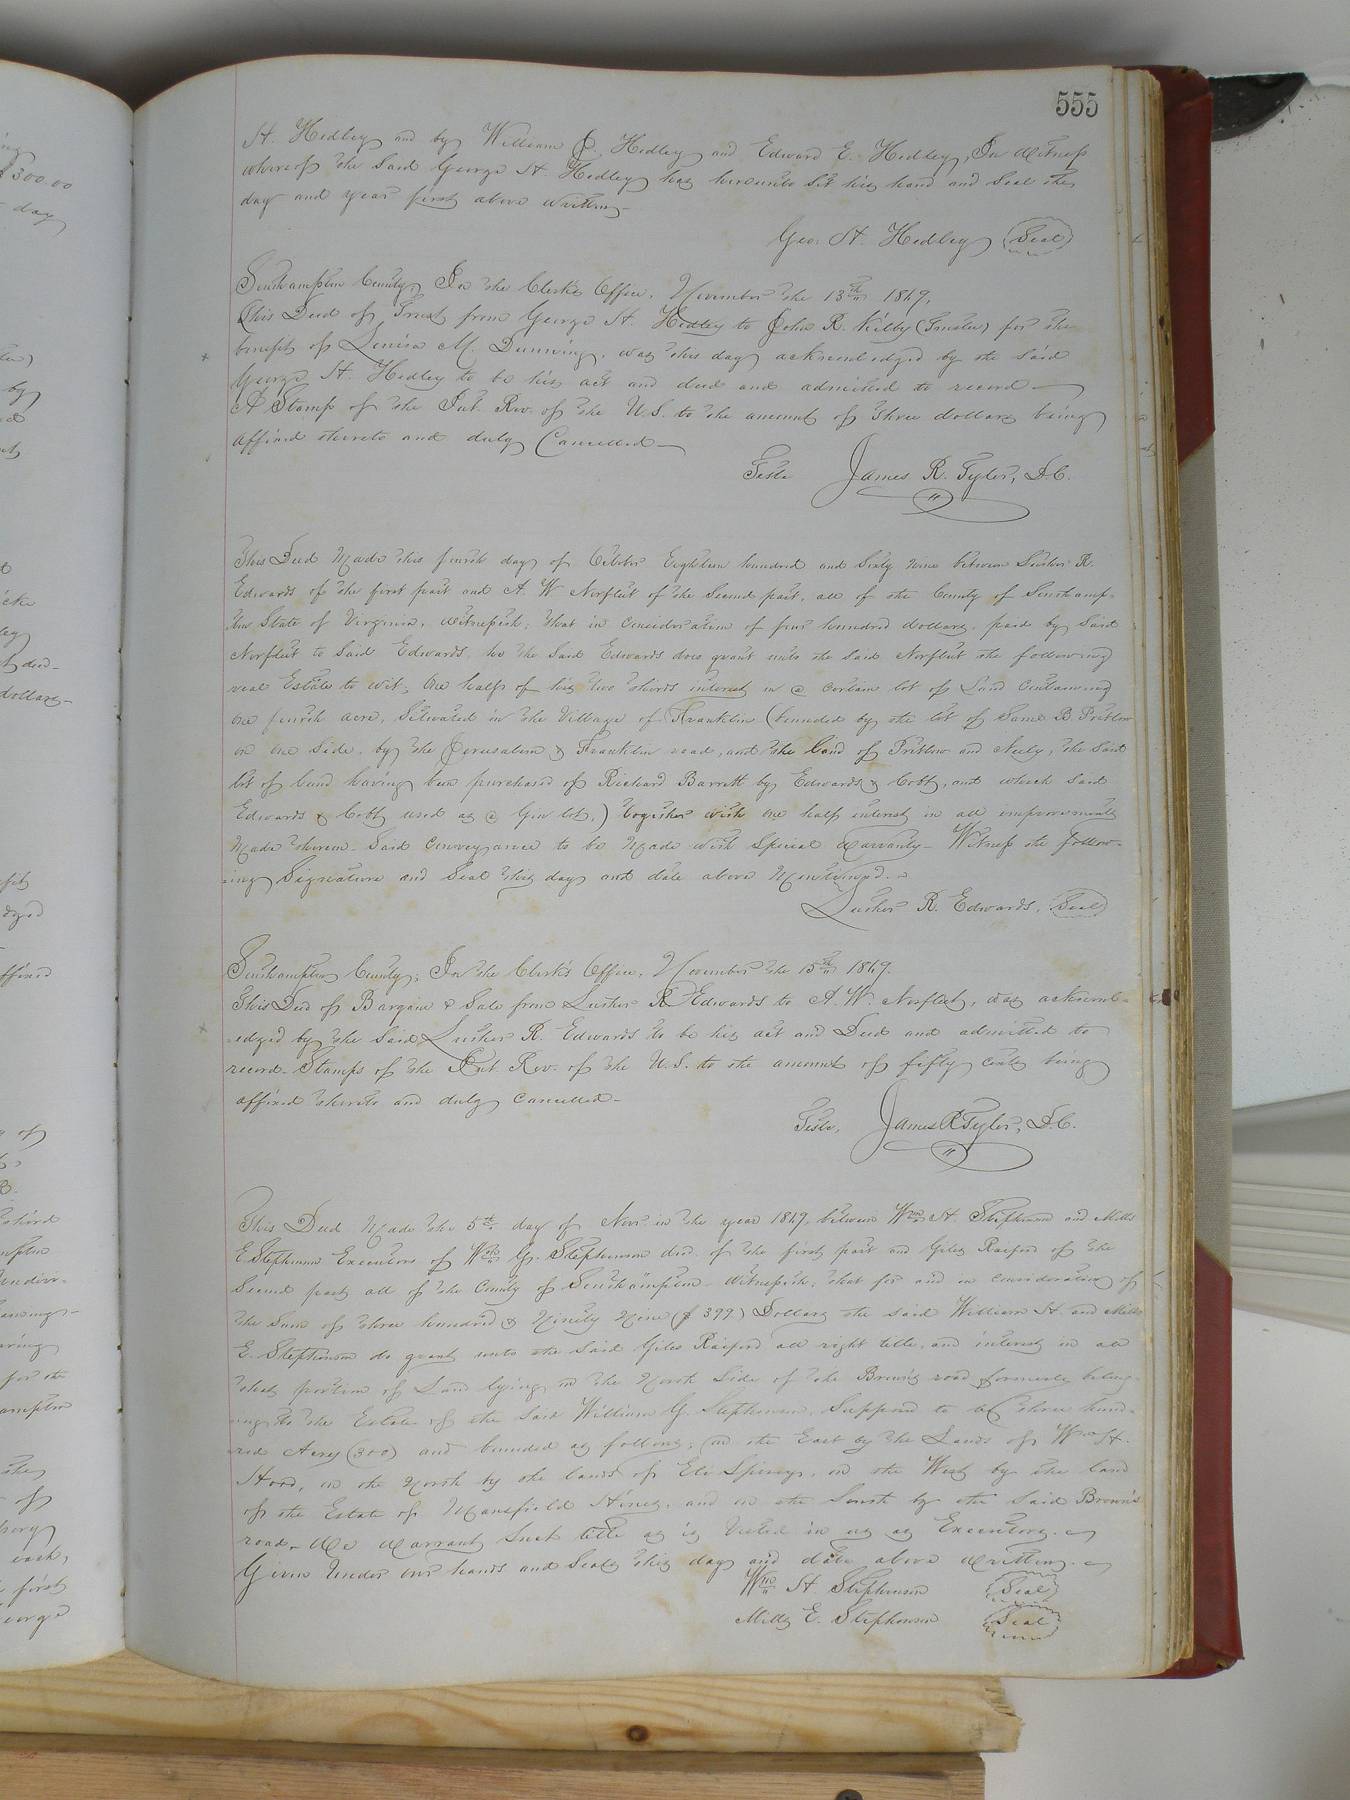 555
H. Hedley and by William J. Hedley and Edward E. Hedley, In Witness
whereof the said George H. Hedley has hereunto set his hand and seal the
day and year first above written
Geo. H. Hedley Seal
Southampton County, In the Clerk's Office, November the 13th 1869.
This Deed of Trust from George H. Hedley to John R. Kilby (Trustee) for the
benefit of Louisa M. Dunning, was this day acknowledged by the said
George H. Hedley to be his act and deed and admitted to record —
A Stamp of the Int. Rev. of the U.S. to the amount of three dollars being
affixed thereto and duly Cancelled —
Teste James R. Tyler, D.C.
This Deed Made this fourth day of October Eighteen hundred and Sixty nine between Luther R.
Edwards of the first part and A. W Norfleet of the Second part, all of the County of Southamp-
ton State of Virginia, Witnesseth; that in Consideration of four hundred dollars, paid by Said
Norfleet to Said Edwards, he the Said Edwards does grant unto the Said Norfleet the following
real Estate to wit; One half of his two thirds interest in a certain lot of Land Containing
one fourth acre, Situated in the Village of Franklin (bounded by the lot of B. Pretlow
on one side, by the Jerusalem & Franklin road, and the land of Pretlow and Neely, the Said
lot of land having been purchased of Richard Barrett by Edwards & Cobb, and which Said
Edwards & Cobb used as a Gin lot,) together with one half interest in all improvements
Made thereon. Said Conveyance to be Made with Special Warranty — Witness the follow-
ing Signature and Seal this day and date above Mentioned. —
Luther R. Edwards, Seal
Southampton County; In the Clerk's Office, November the 15th 1869.
This Deed of Bargain & Sale from Luther R Edwards to A. W. Norfleet, was acknowl-
edged by the Said Luther R. Edwards to be his act and Deed and admitted to
record. Stamps of the Int. Rev. of the U.S. to the amount of fifty cents being
affixed thereto and duly cancelled —
Teste, James R Tyler, D.C.
This Deed Made the 5th day of Nov. in the year 1869, between Wm H. Stephenson and Mills
E. Stephenson Executors of Wm G. Stephenson decd. of the first part and Giles Raiford of the
Second part all of the County of Southampton — Witnesseth, that for and in consideration of
the Sum of three hundred & Ninety Nine ($ 399.) Dollars the said William H. and Mills
E. Stephenson do grant unto the Said Giles Raiford all right title, and interest in all
that portion of Land lying on the North Side of the Brown's road formerly belong-
ing to the Estate of the Said William G. Stephenson, Supposed to be three hund-
red Acres (300) and bounded as follows; on the East by the Lands of Wm H.
Hood, on the North by the lands of Eli Spivey, on the West by the land
of the Estate of Mansfield Hines, and on the South by the Said Brown's
road. We Warrant Such title as is Vested in us as Executors. —
Given Under our hands and Seals this day and date above Written. —
Wm H. Stephenson Seal
Mills E. Stephenson Seal